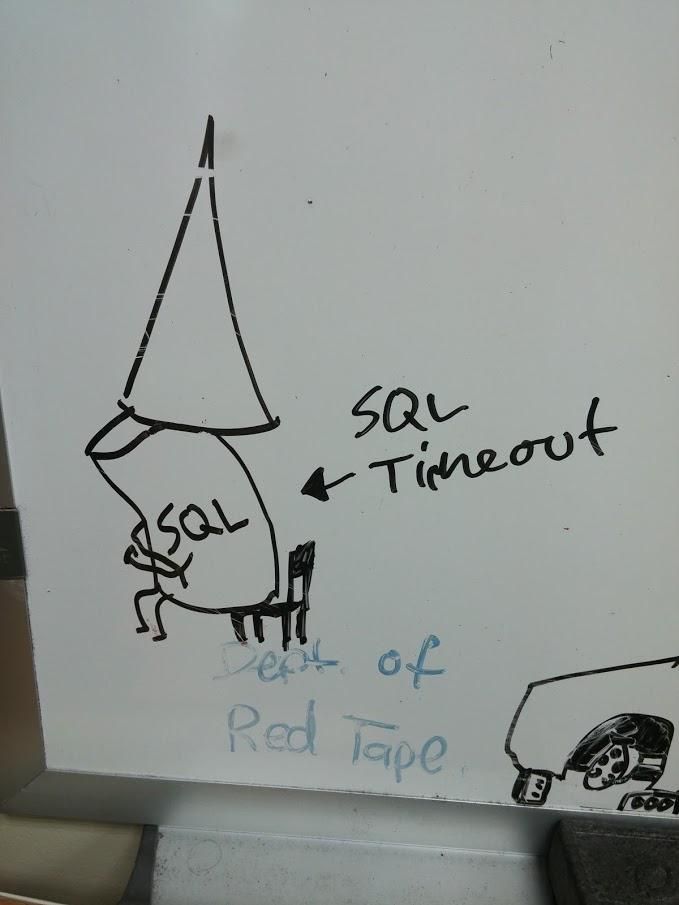 SQL
Timeout
SQL
Dept. of
Red Tape